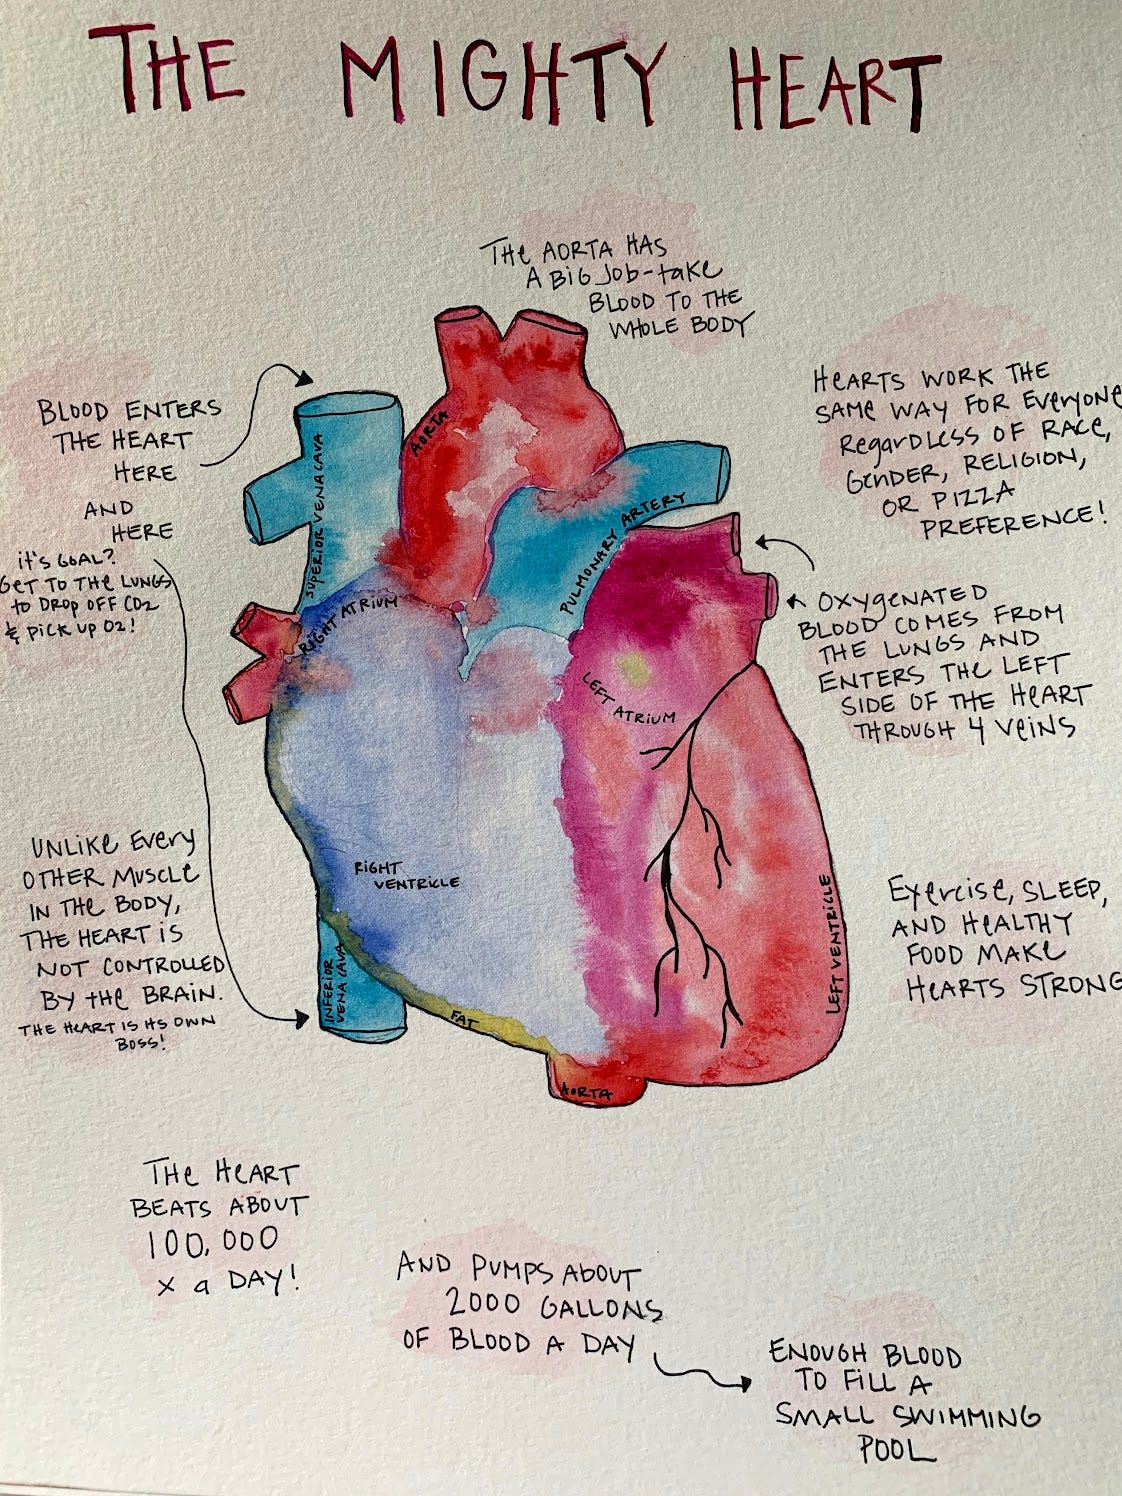 THE MIGHTY HEART
THE AORTA HAS
A BIG JOB-TAKE
BLOOD TO THE
WHOLE BODY
BLOOD ENTERS
THE HEART
HERE
AND
HERE
IT'S GOAL?
GET TO THE LUNGS
TO DROP OFF CO2
& PICK UP O2!
HEARTS WORK THE
SAME WAY FOR EVERYONE
REGARDLESS OF RACE,
GENDER, RELIGION,
OR PIZZA
PREFERENCE!
OXYGENATED
BLOOD COMES FROM
THE LUNGS AND
ENTERS THE LEFT
SIDE OF THE HEART
THROUGH 4 VEINS
SUPERIOR VENA CAVA
AORTA
PULMONARY ARTERY
RIGHT ATRIUM
LEFT
ATRIUM
RIGHT
VENTRICLE
LEFT VENTRICLE
INFERIOR
VENA CAVA
FAT
AORTA
UNLIKE EVERY
OTHER MUSCLE
IN THE BODY,
THE HEART IS
NOT CONTROLLED
BY THE BRAIN.
THE HEART IS ITS OWN
BOSS!
EXERCISE, SLEEP,
AND HEALTHY
FOOD MAKE
HEARTS STRONG
THE HEART
BEATS ABOUT
100,000
X A DAY!
AND PUMPS ABOUT
2000 GALLONS
OF BLOOD A DAY
ENOUGH BLOOD
TO FILL A
SMALL SWIMMING
POOL